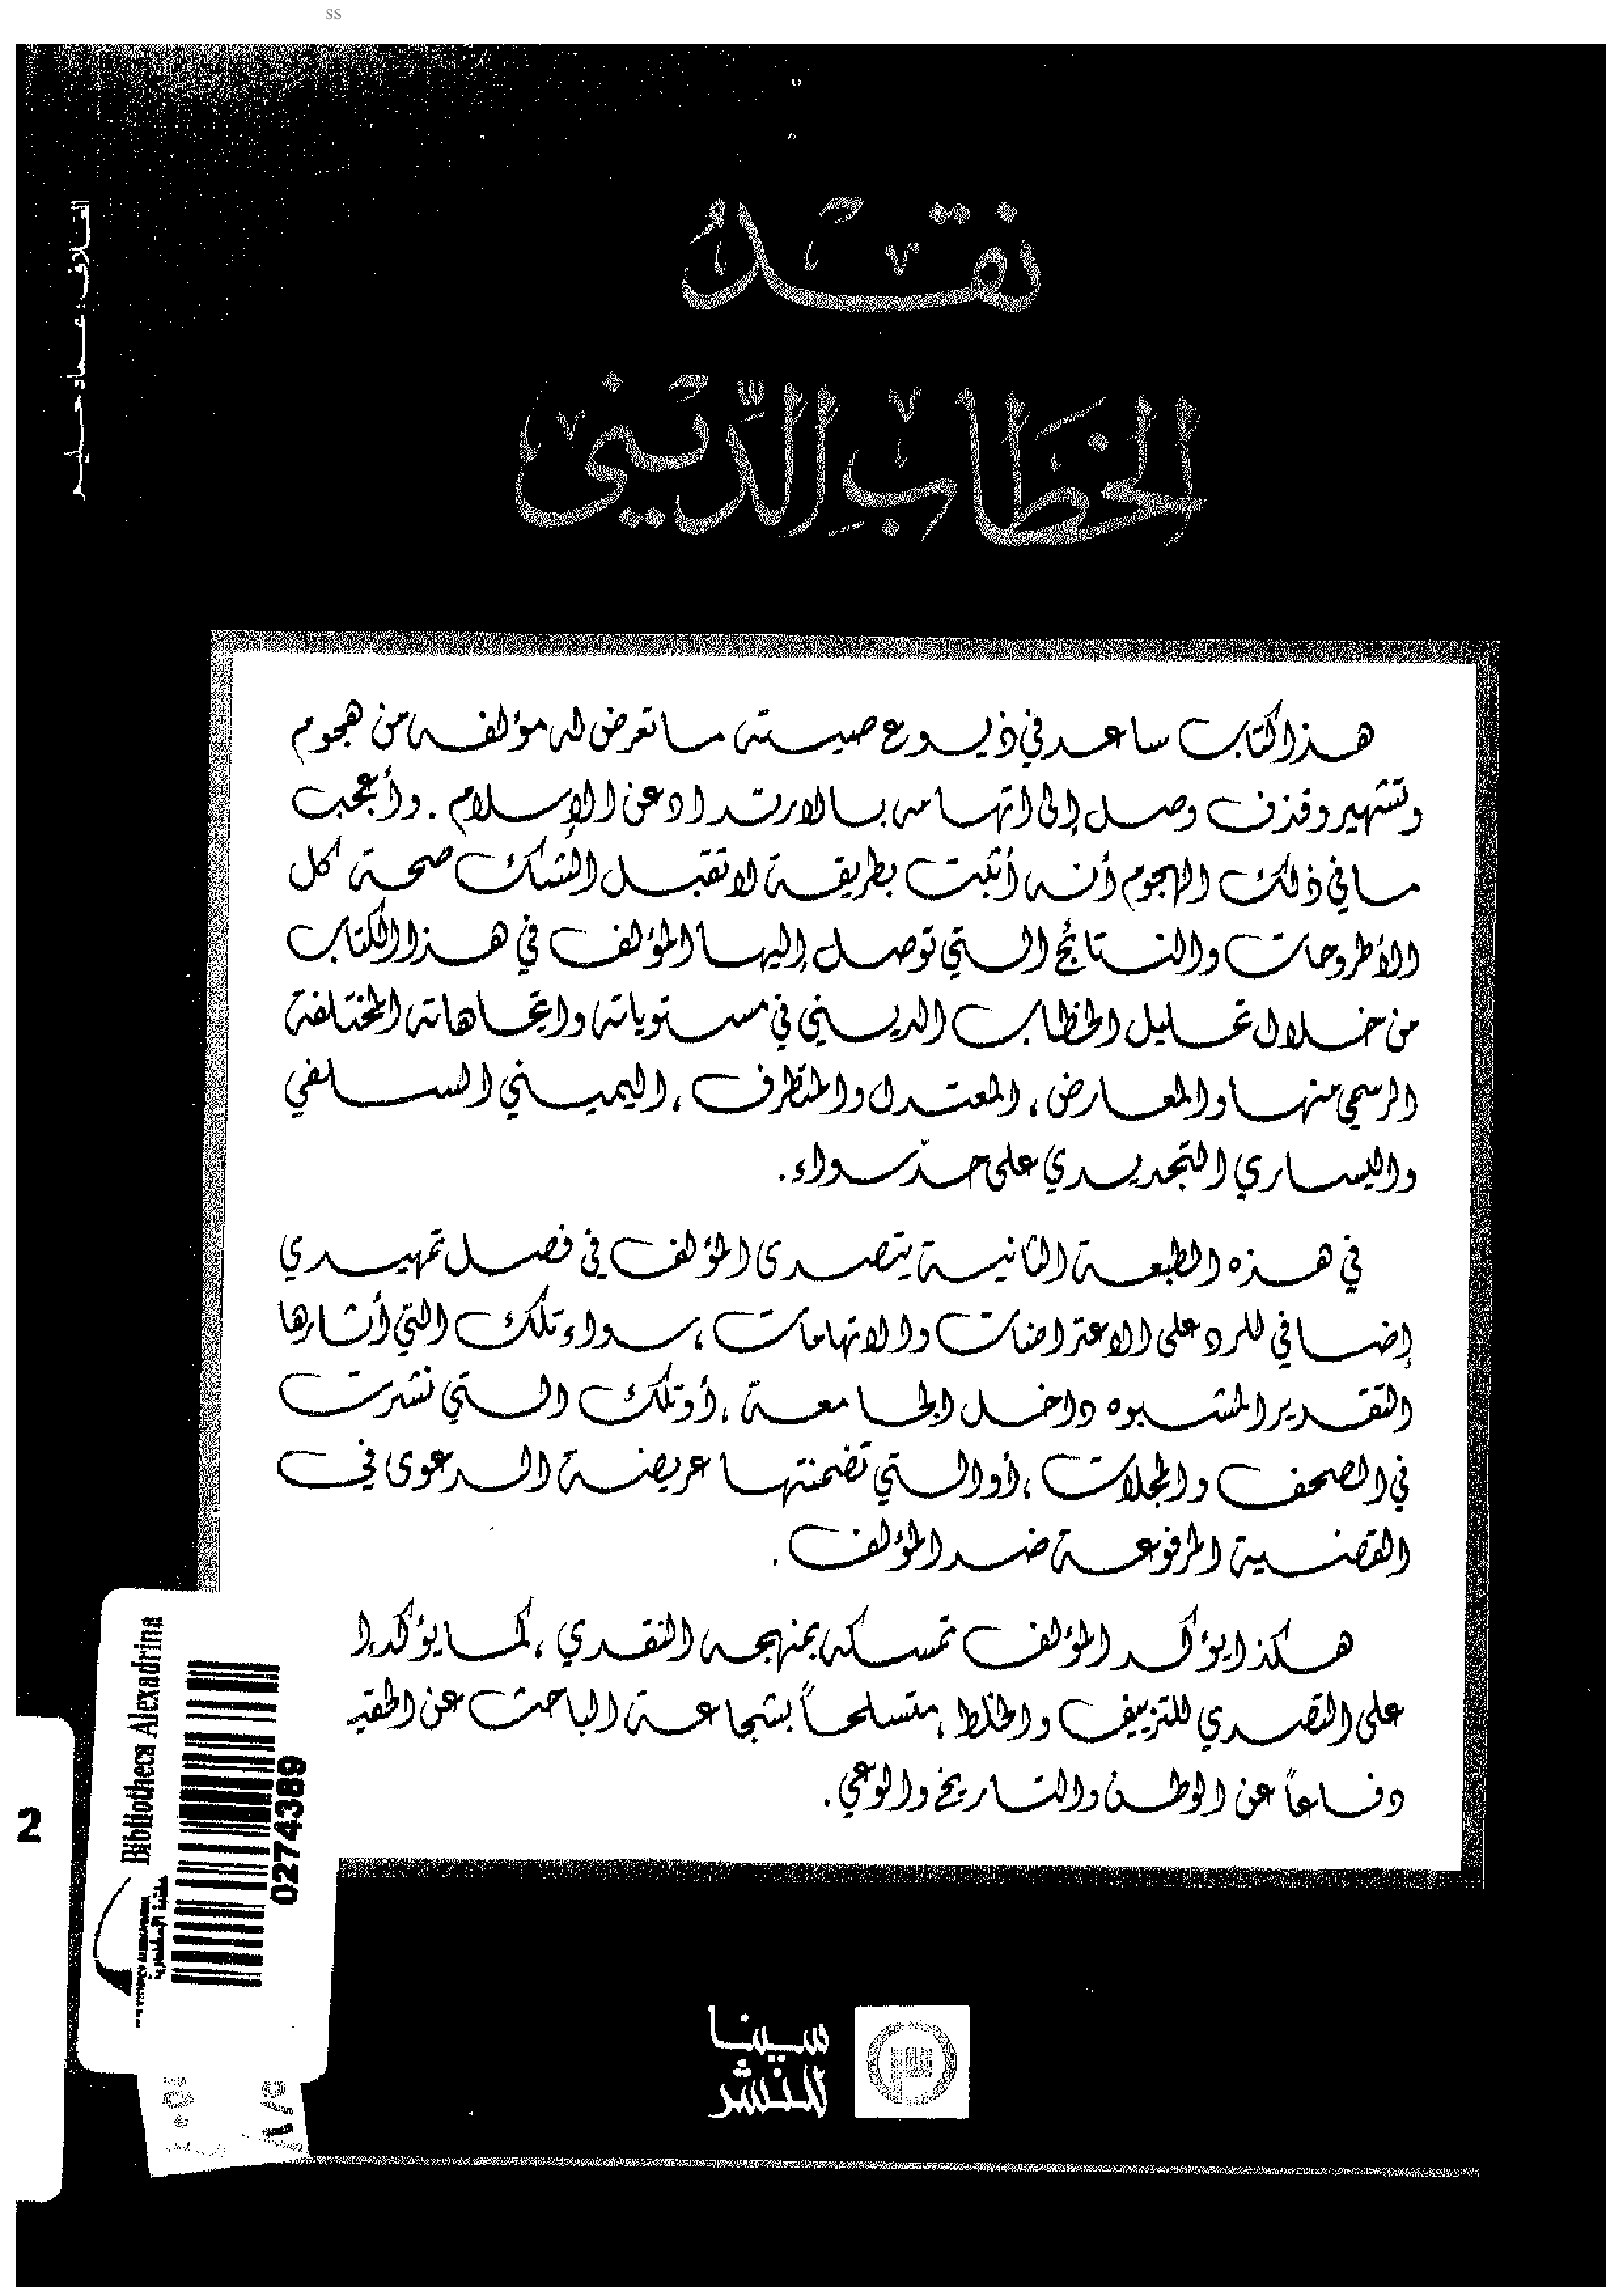 ss
الغلاف : عماد حليم
نقد
الخطاب الديني
هذا كتاب ساعد في ذيوع صيته ما تعرض له مؤلفه من هجوم
وتشهير وقذف وصل إلى اتهامه بالارتداد عن الإسلام . وأعجب
ما في ذلك الهجوم أنه أثبت بطريقة لا تقبل الشك صحة كل
الأطروحات والنتائج التي توصل إليها المؤلف في هذا الكتاب
من خلال تحليل الخطاب الديني في مستوياته واتجاهاته المختلفة
الرسمي منها والمعارض ، المعتدل والمتطرف ، اليميني السلفي
واليساري التجديدي على حدّ سواء .
في هذه الطبعة الثانية يتصدى المؤلف في فصل تمهيدي
إضافي للرد على الاعتراضات والاتهامات ، سواء تلك التي أثارها
التقدير المشبوه داخل الجامعة ، أو تلك التي نشرت
في الصحف والمجلات ، أو التي تضمنتها عريضة الدعوى في
القضية المرفوعة ضد المؤلف .
هكذا يؤكد المؤلف تمسكه بمنهجه النقدي ، كما يؤكد إ
على التصدي للتزييف والخلط ، متسلحاً بشجاعة الباحث عن الحقيـ
دفاعاً عن الوطن والتاريخ والوعي .
Bibliotheca Alexadrina
مكتبة الإسكندرية
0274389
2
سينا
للنشر